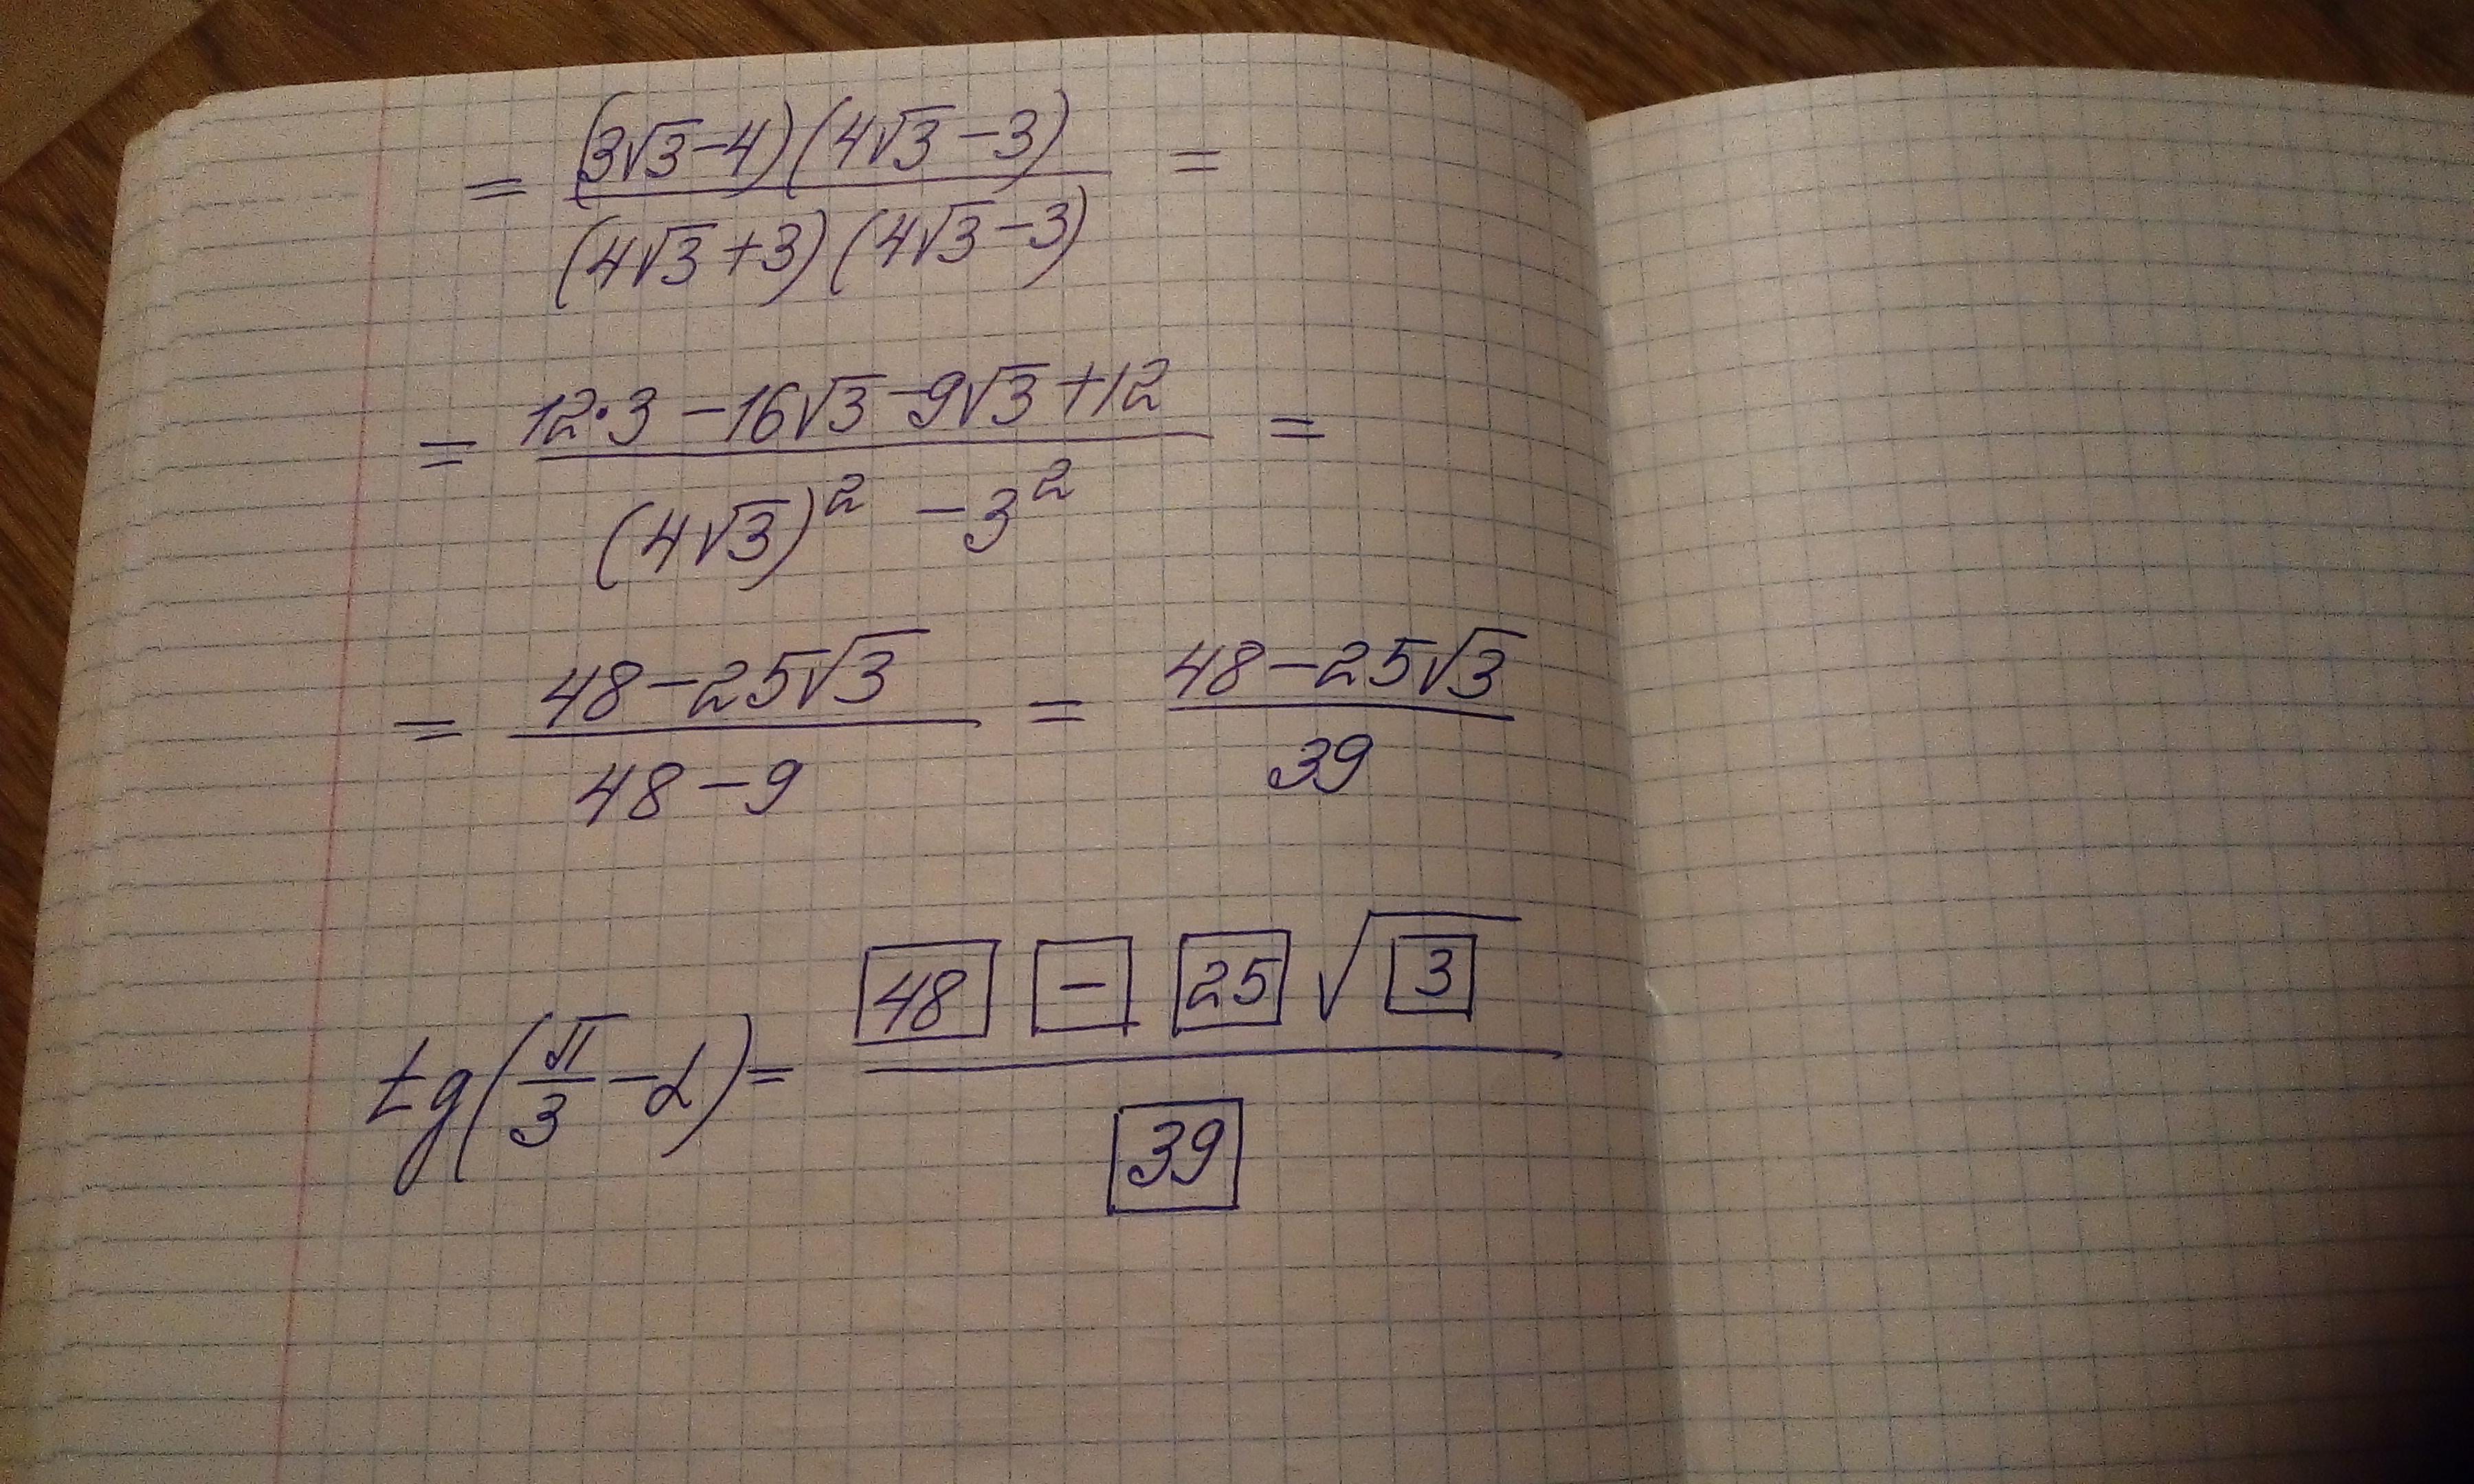 = (3√3-4)(4√3-3) / (4√3+3)(4√3-3) =
= 12·3-16√3-9√3+12 / (4√3)² -3² =
= 48-25√3 / 48-9 = 48-25√3 / 39
tg(π/3-α)= 48 - 25 √3 / 39